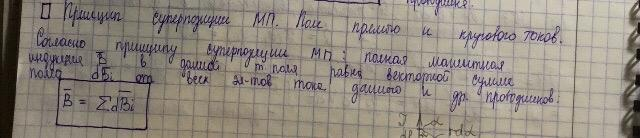 проводника.
□ Принцип суперпозиции МП. Поле прямого и кругового токов.
Согласно принципу суперпозиции МП: полная магнитная
индукция B̅ в данной т. поля равна векторной сумме
полей dB̅i от всех эл-тов тока данного и др. проводников:
B̅ = ∑dB̅i